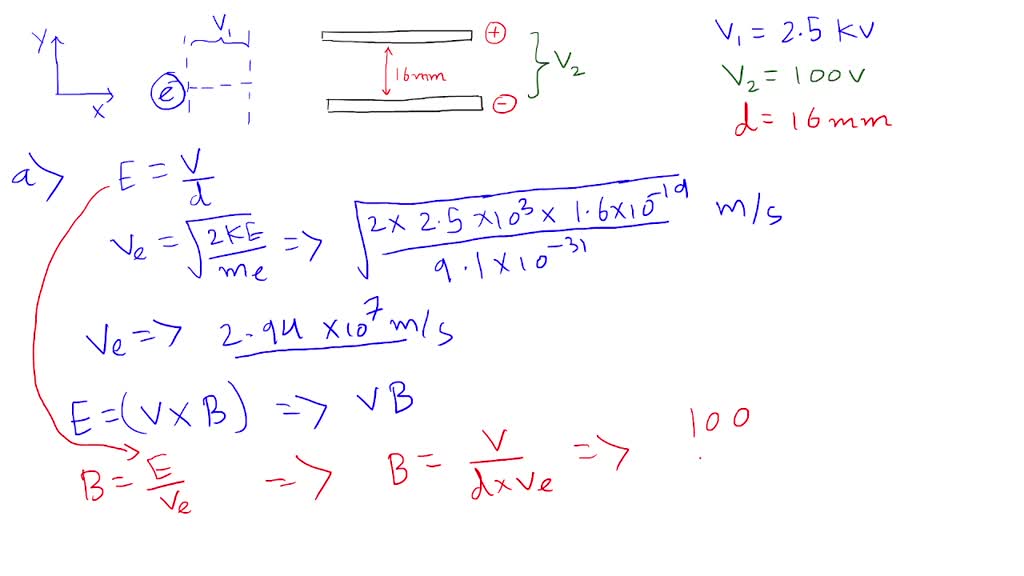 Y
X
V₁
e⁻
16mm
+
-
V₂
V₁ = 2.5 KV
V₂ = 100V
d = 16mm
a> E = V/d
Vₑ = √(2KE/mₑ) => √(2 x 2.5 x10³ x 1.6x10⁻¹⁹ / 9.1x10⁻³¹) m/s
Vₑ => 2.94 x10⁷ m/s
E = (V x B) => VB
B = E/Vₑ => B = V/(d x Vₑ) => 100